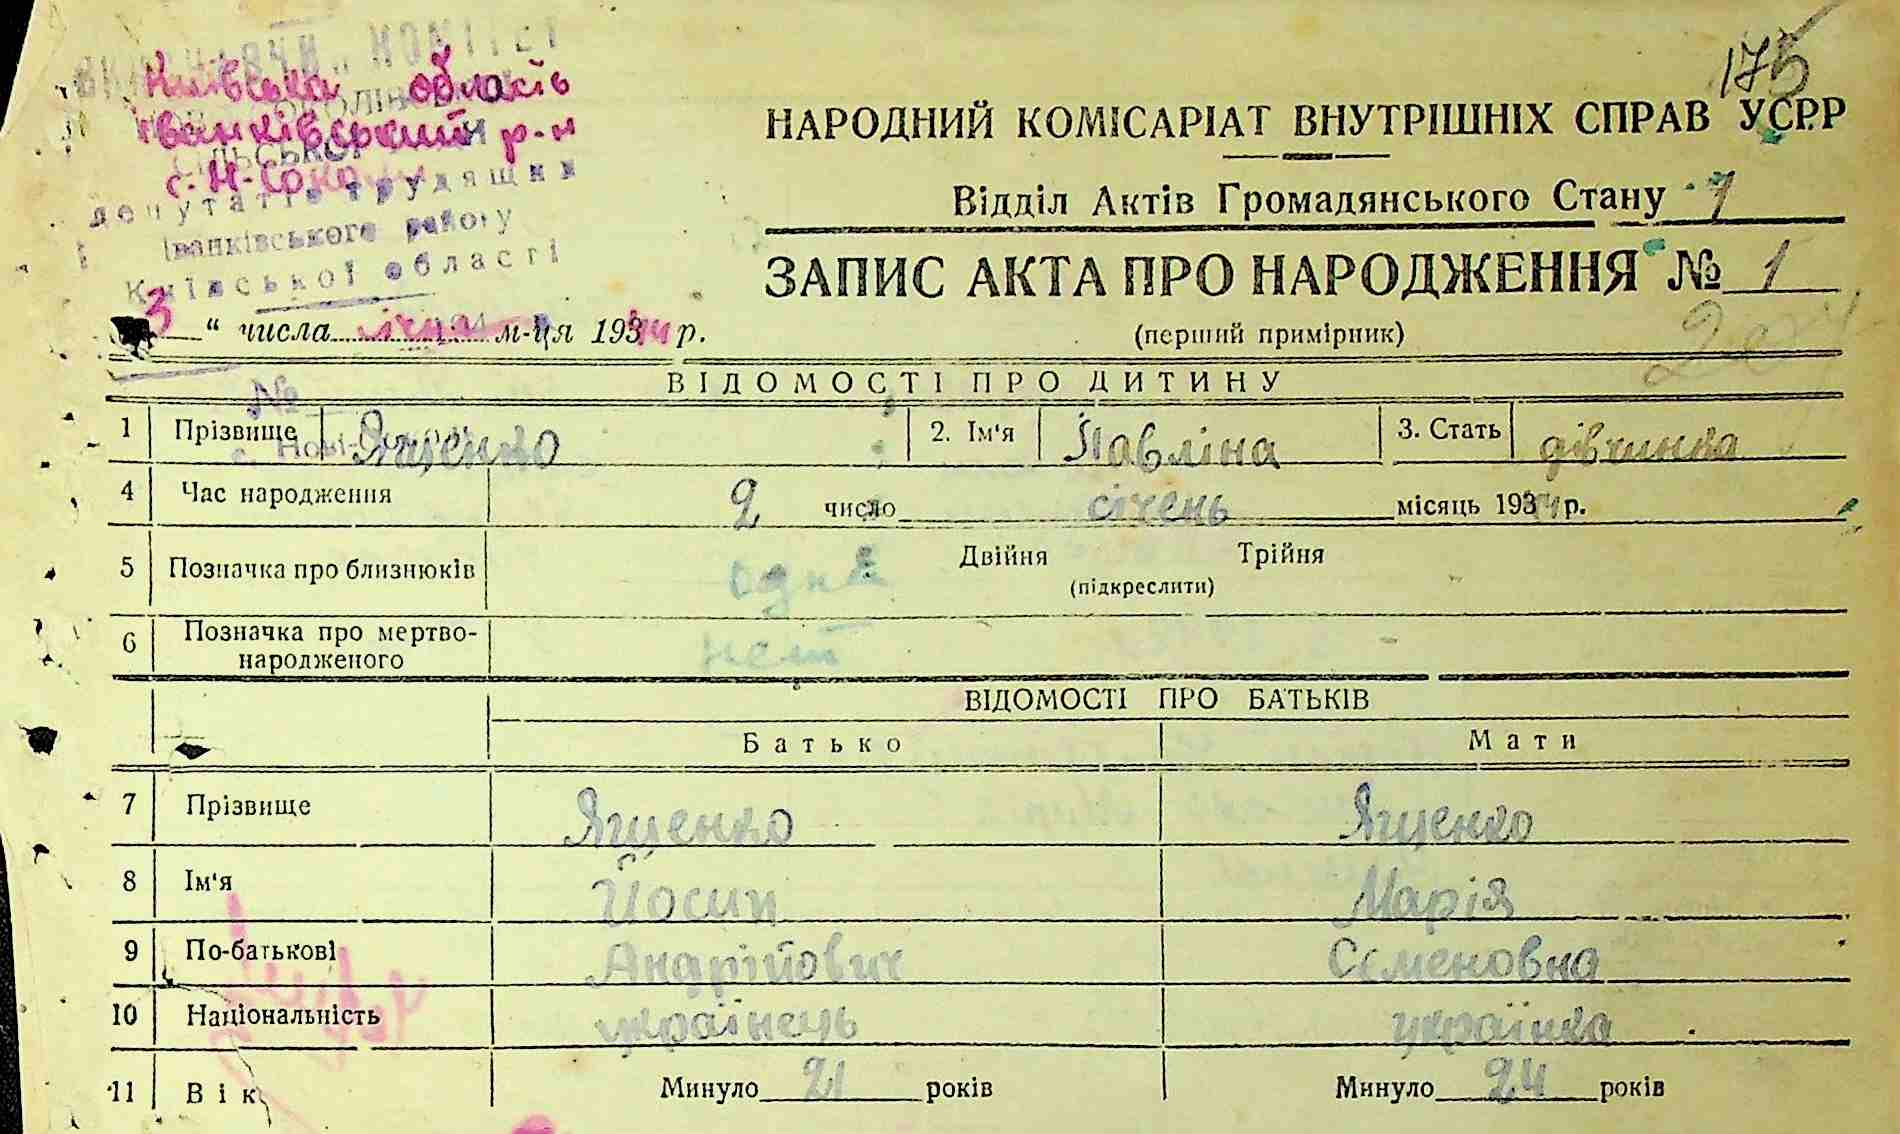 ВИКОНАВЧИЙ КОМІТЕТ
Київська область
Іванківський р-н
СІЛЬСЬКОЇ
с. Н-Соколи
депутатів трудящих
Іванківського району
Київської області
175
НАРОДНИЙ КОМІСАРІАТ ВНУТРІШНІХ СПРАВ УСРР
Відділ Актів Громадянського Стану 1
ЗАПИС АКТА ПРО НАРОДЖЕННЯ № 1
(перший примірник)
3 “ числа січня м-ця 1944 р.
№
ВІДОМОСТІ ПРО ДИТИНУ
1 Прізвище Ященко 2. Ім'я Павліна 3. Стать дівчинка
4 Час народження 2 число січень місяць 1944 р.
5 Позначка про близнюків одна Двійня Трійня
(підкреслити)
6 Позначка про мертво-
народженого нет
ВІДОМОСТІ ПРО БАТЬКІВ
Батько Мати
7 Прізвище Ященко Ященко
8 Ім'я Йосип Марія
9 По-батькові Андрійович Семеновна
10 Національність українець українка
11 Вік Минуло 21 років Минуло 24 років